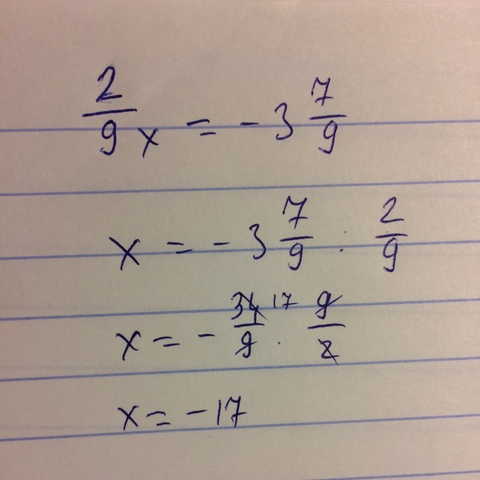 2/9 x = -3 7/9
x = -3 7/9 : 2/9
x = - 34/9 17 · 9/2
x = -17